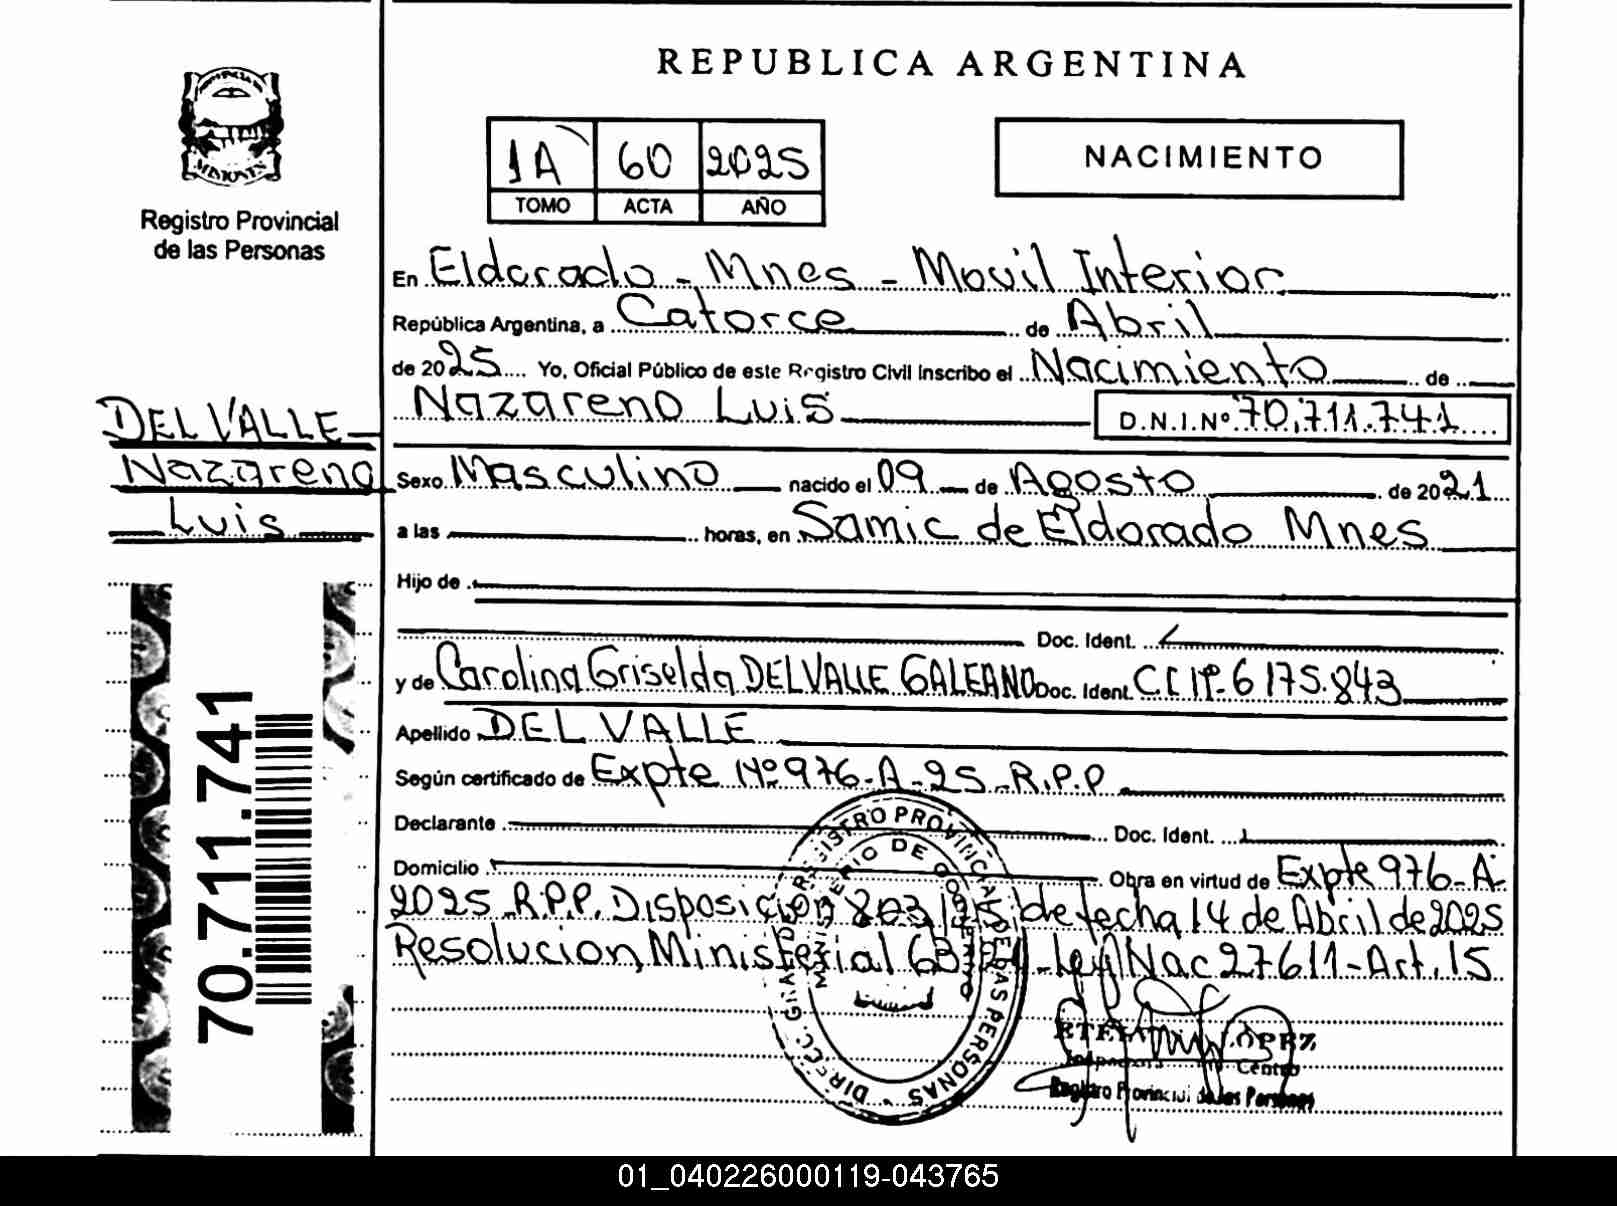 REPUBLICA ARGENTINA
MISIONES
Registro Provincial
de las Personas
1A 60 2025
TOMO ACTA AÑO
NACIMIENTO
En Eldorado - Mnes - Movil Interior
República Argentina, a Catorce de Abril
de 2025 Yo, Oficial Público de este Registro Civil Inscribo el Nacimiento de
Nazareno Luis D.N.I.Nº 70.711.741
DEL VALLE
Nazareno
Luis
Sexo Masculino nacido el 09 de Agosto de 2021
a las horas, en Samic de Eldorado Mnes
Hijo de
Doc. Ident.
y de Carolina Griselda DEL VALLE GALEANO Doc. Ident. C.I Nº 6 175.843
Apellido DEL VALLE
Según certificado de Expte Nº 976-A-25-R.P.P
Declarante Doc. Ident.
Domicilio Obra en virtud de Expte 976-A-
2025 R.P.P. Disposición de fecha 14 de Abril de 2025
Resolucion Ministerial Ley Nac 27611-Art. 15
70.711.741
DIREC. GRAL. DE REGISTRO PROVINCIAL DE LAS PERSONAS
MINISTERIO DE GOBIERNO
LÓPEZ
Centro
Registro Provincial de las Personas
01_040226000119-043765